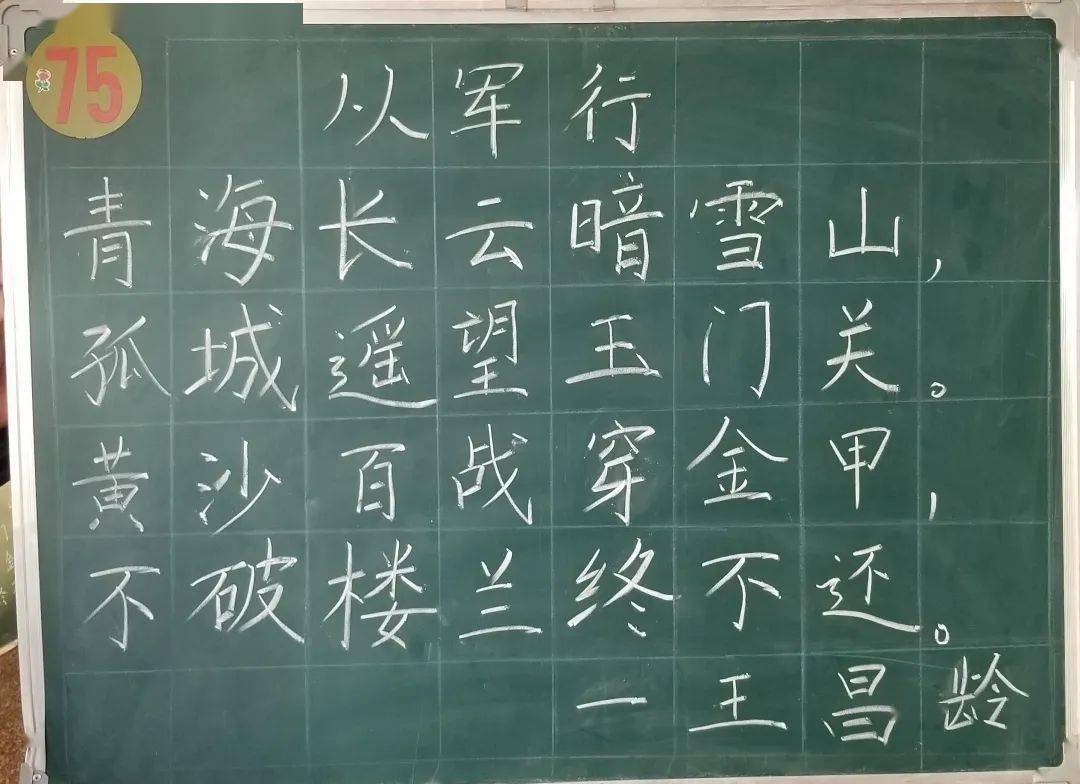 75
从军行
青海长云暗雪山,
孤城遥望玉门关。
黄沙百战穿金甲,
不破楼兰终不还。
一王昌龄